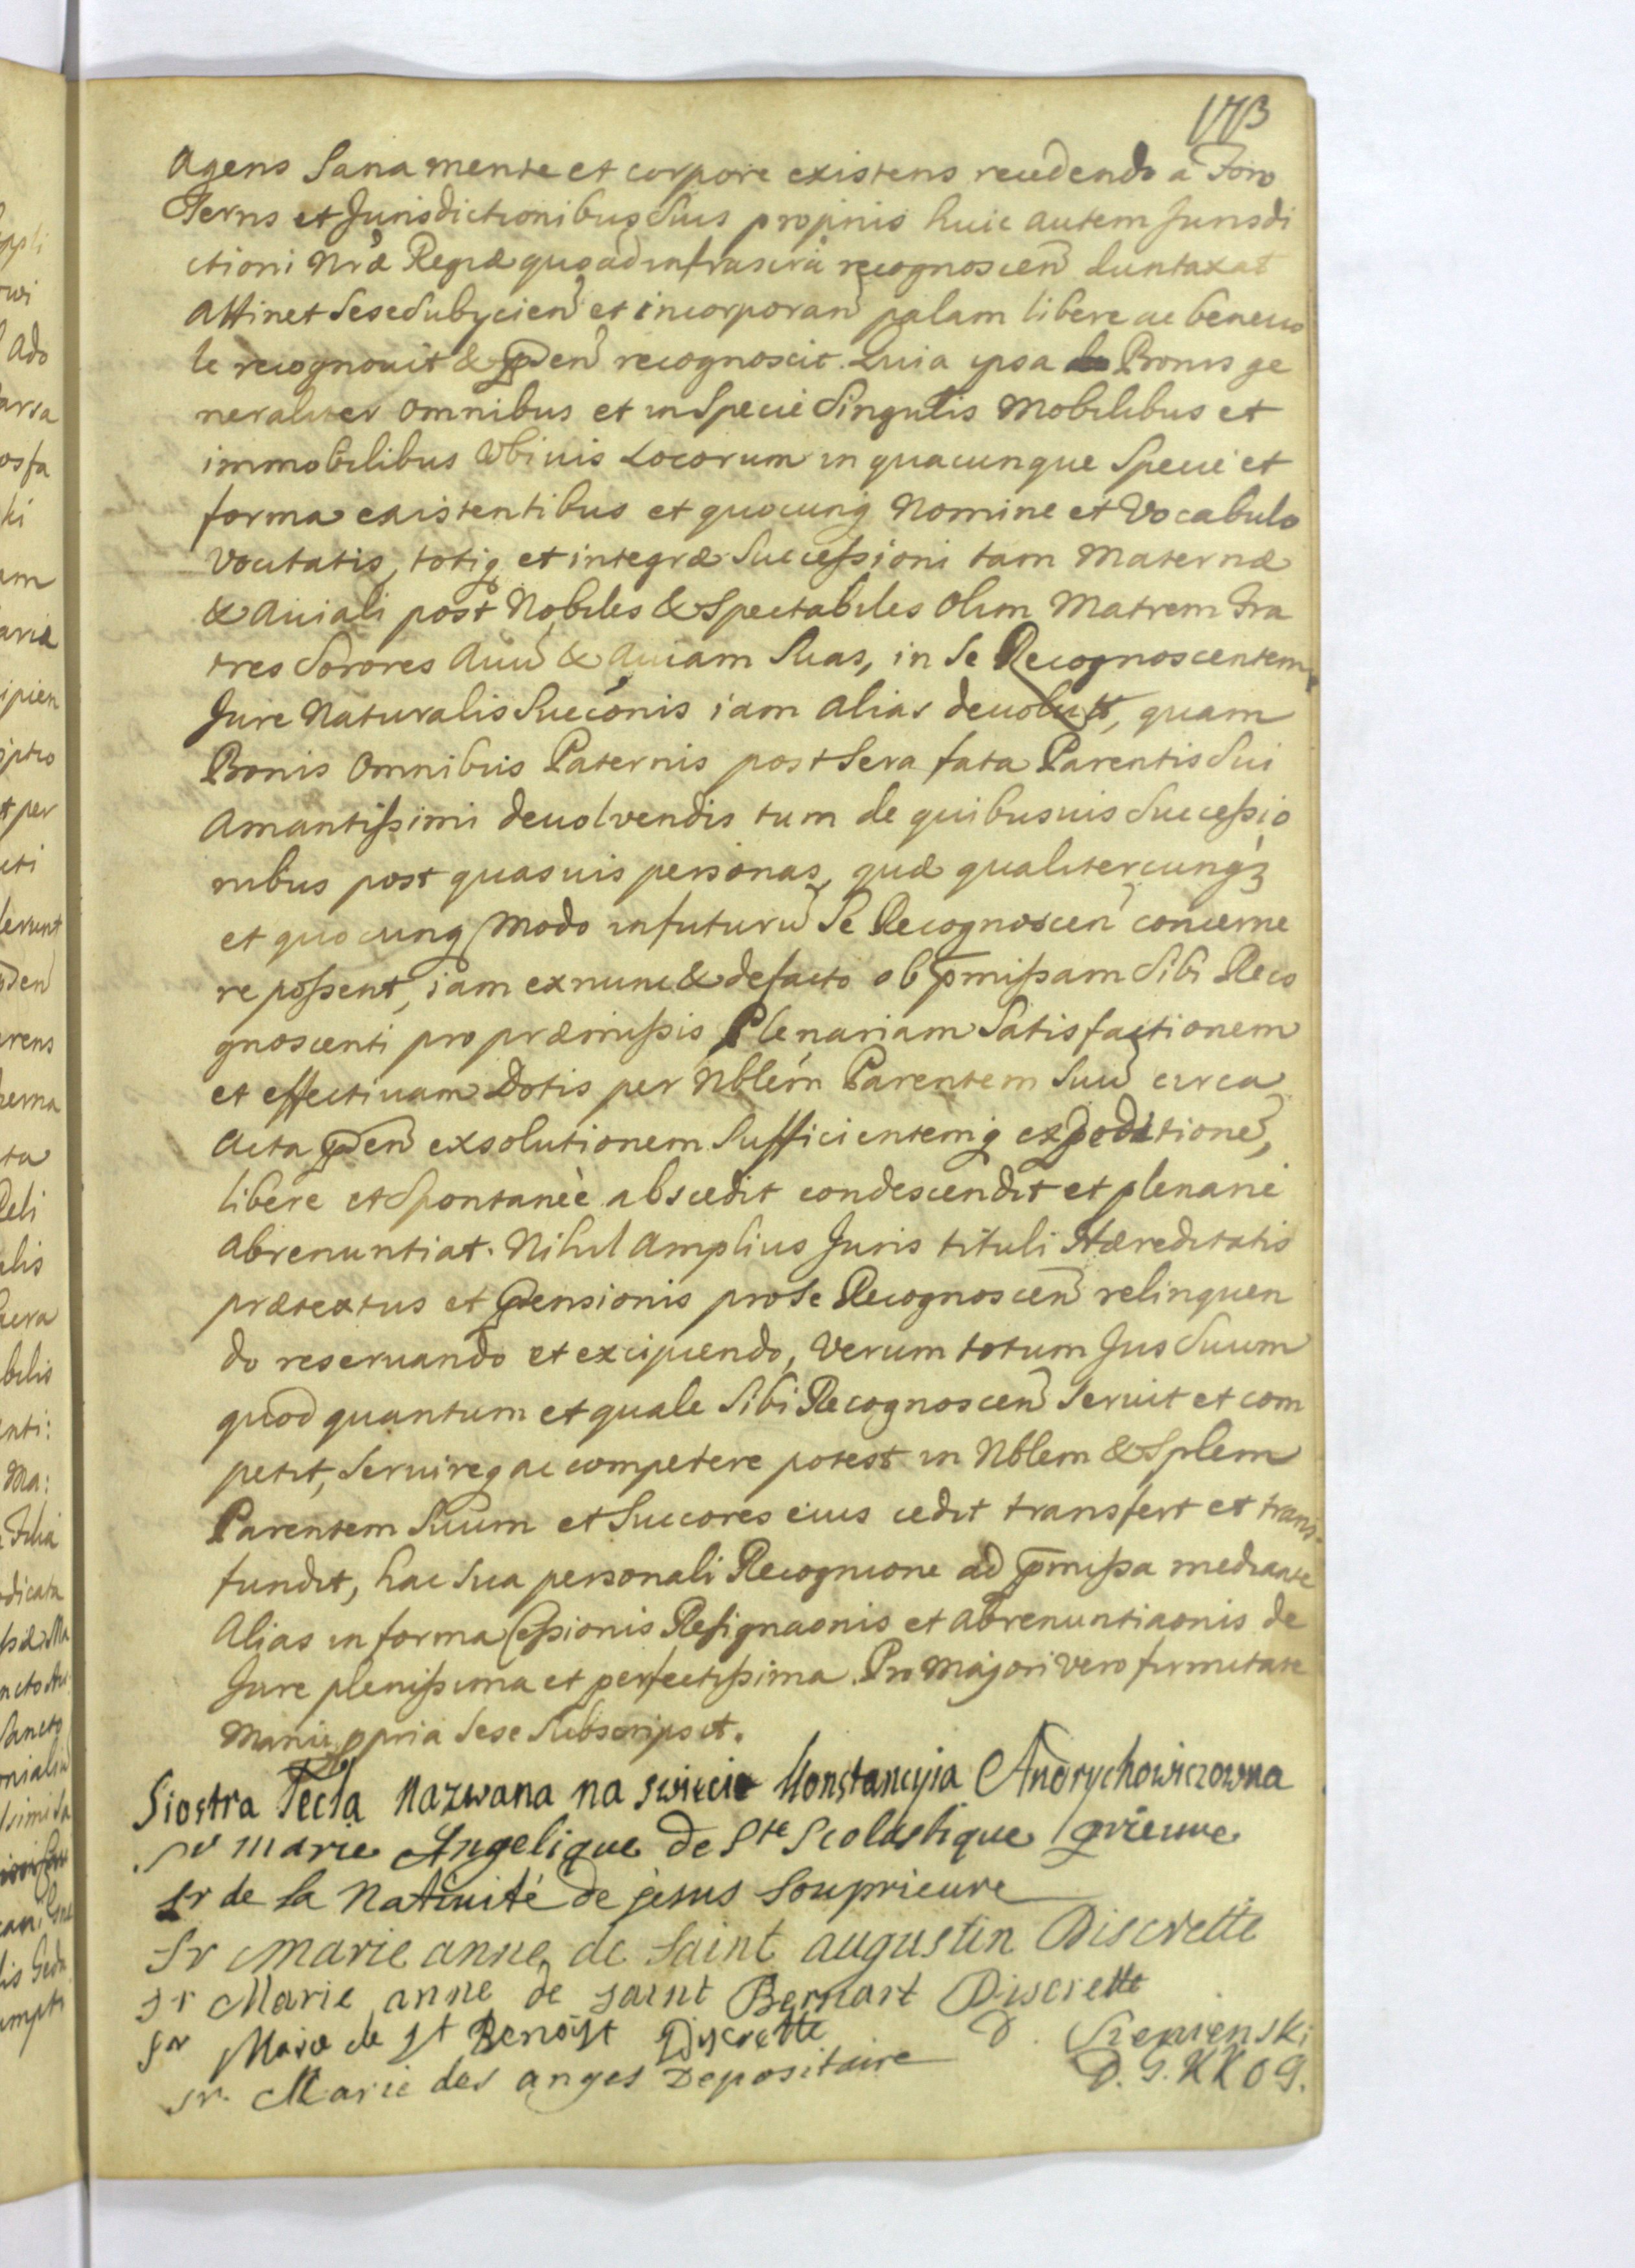 173
Agens Sana mente et corpore existens recedendo a Foro
Terris et Jurisdictionibus Suis propriis huic autem Jurisdi
ctioni Nrae Regiae quo ad infrascra recognoscen duntaxat
Attinet Sese Subycien et incorporan palam libere ac beneuo
le recognouit & pden recognoscit. Quia ipsa de Bonis ge
neraliter omnibus et in Specie Singulis Mobilibus et
immobilibus Vbiuis Locorum in quacunque Specie et
forma existentibus et quocunq Nomine et Vocabulo
Vocitatis, totiq et integrae Successioni tam Maternae
& Auiali post Nobiles & Spectabiles Olim Matrem Fra
tres Sorores Auu & Auiam Suas, in Se Recognoscentem
Jure Naturalis Succonis iam alias deuolutis, quam
Bonis Omnibus Paternis post Sera fata Parentis Sui
Amantissimi deuolvendis tum de quibusuis Successio
nibus post quasuis personas, quae qualitercunq3
et quocunq modo in futuru Se Recognoscen concerne
re possent, iam ex nunc & de facto ob pmissam Sibi Reco
gnoscenti pro praemissis Plenariam Satisfactionem
et effectiuam Dotis per Nblem Parentem Suu circa
Acta pden exsolutionem Sufficientemq expeditione,
libere et Spontanee abscedit condescendit et plenarie
abrenuntiat. Nihil amplius Juris tituli Haereditatis
praetextus et ptensionis pro Se Recognoscen relinquen
do reseruando et excipiendo, Verum totum Jus Suum
quod quantum et quale Sibi Recognoscen Seruit et com
petit, Seruireq ac competere potest in Nblem & Splem
Parentem Suum et Succores eius cedit transfert et trans
fundit, hac Sua personali Recognione ad pmissa mediante
Alias in forma Cessionis Resignaonis et abrenuntiaonis de
Jure plenissima et perfectissima. Pro Majori vero firmitate
Manu ppria Sese Subscripsit.
Siostra Tecla Nazwana na swiecie Konstancyia Andrychowiczowna
Sr marie Angelique de Ste Scolastique prieure
Sr de la Natiuité de jesus Souprieure
Sr Marie anne de Saint augustin Discrette
Sr Marie anne de saint Bernart Discrette
Sr Marie de St Benoist Discrette
Sr. Marie des anges Depositaire
D.
D. G. K K O G.